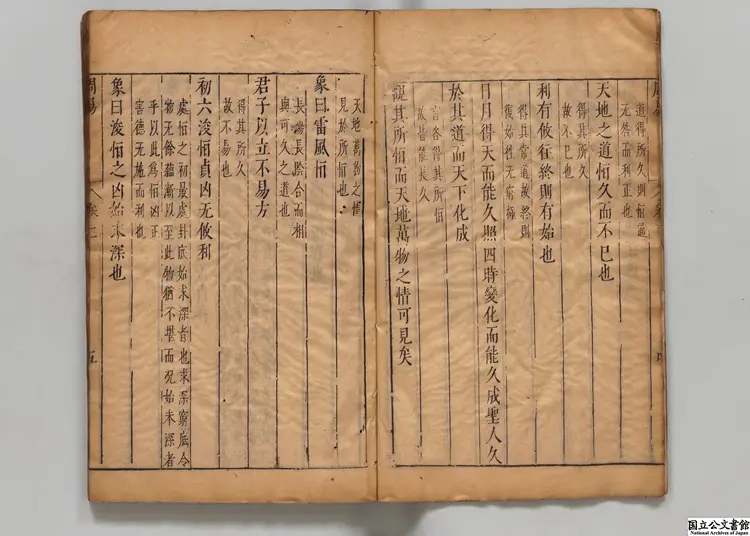 道得所久則恒通
无咎而利正也
天地之道恒久而不已也
得其所久
故不已也
利有攸往終則有始也
得其常道故終則
復始往无窮極
日月得天而能久照四時變化而能久成聖人久
於其道而天下化成
言各得其所恒
故皆能長久
觀其所恒而天地萬物之情可見矣
天地萬物之情
見於所恒也
象曰雷風恒
長陽長陰合而相
與可久之道也
君子以立不易方
得其所久
故不易也
初六浚恒貞凶无攸利
處恒之初最處卦底始求深者也求深窮底令
物无餘蘊漸以至此物猶不堪而况始求深者
乎以此為恒凶正
害德无施而利也
象曰浚恒之凶始求深也
周易
五
国立公文書館
National Archives of Japan